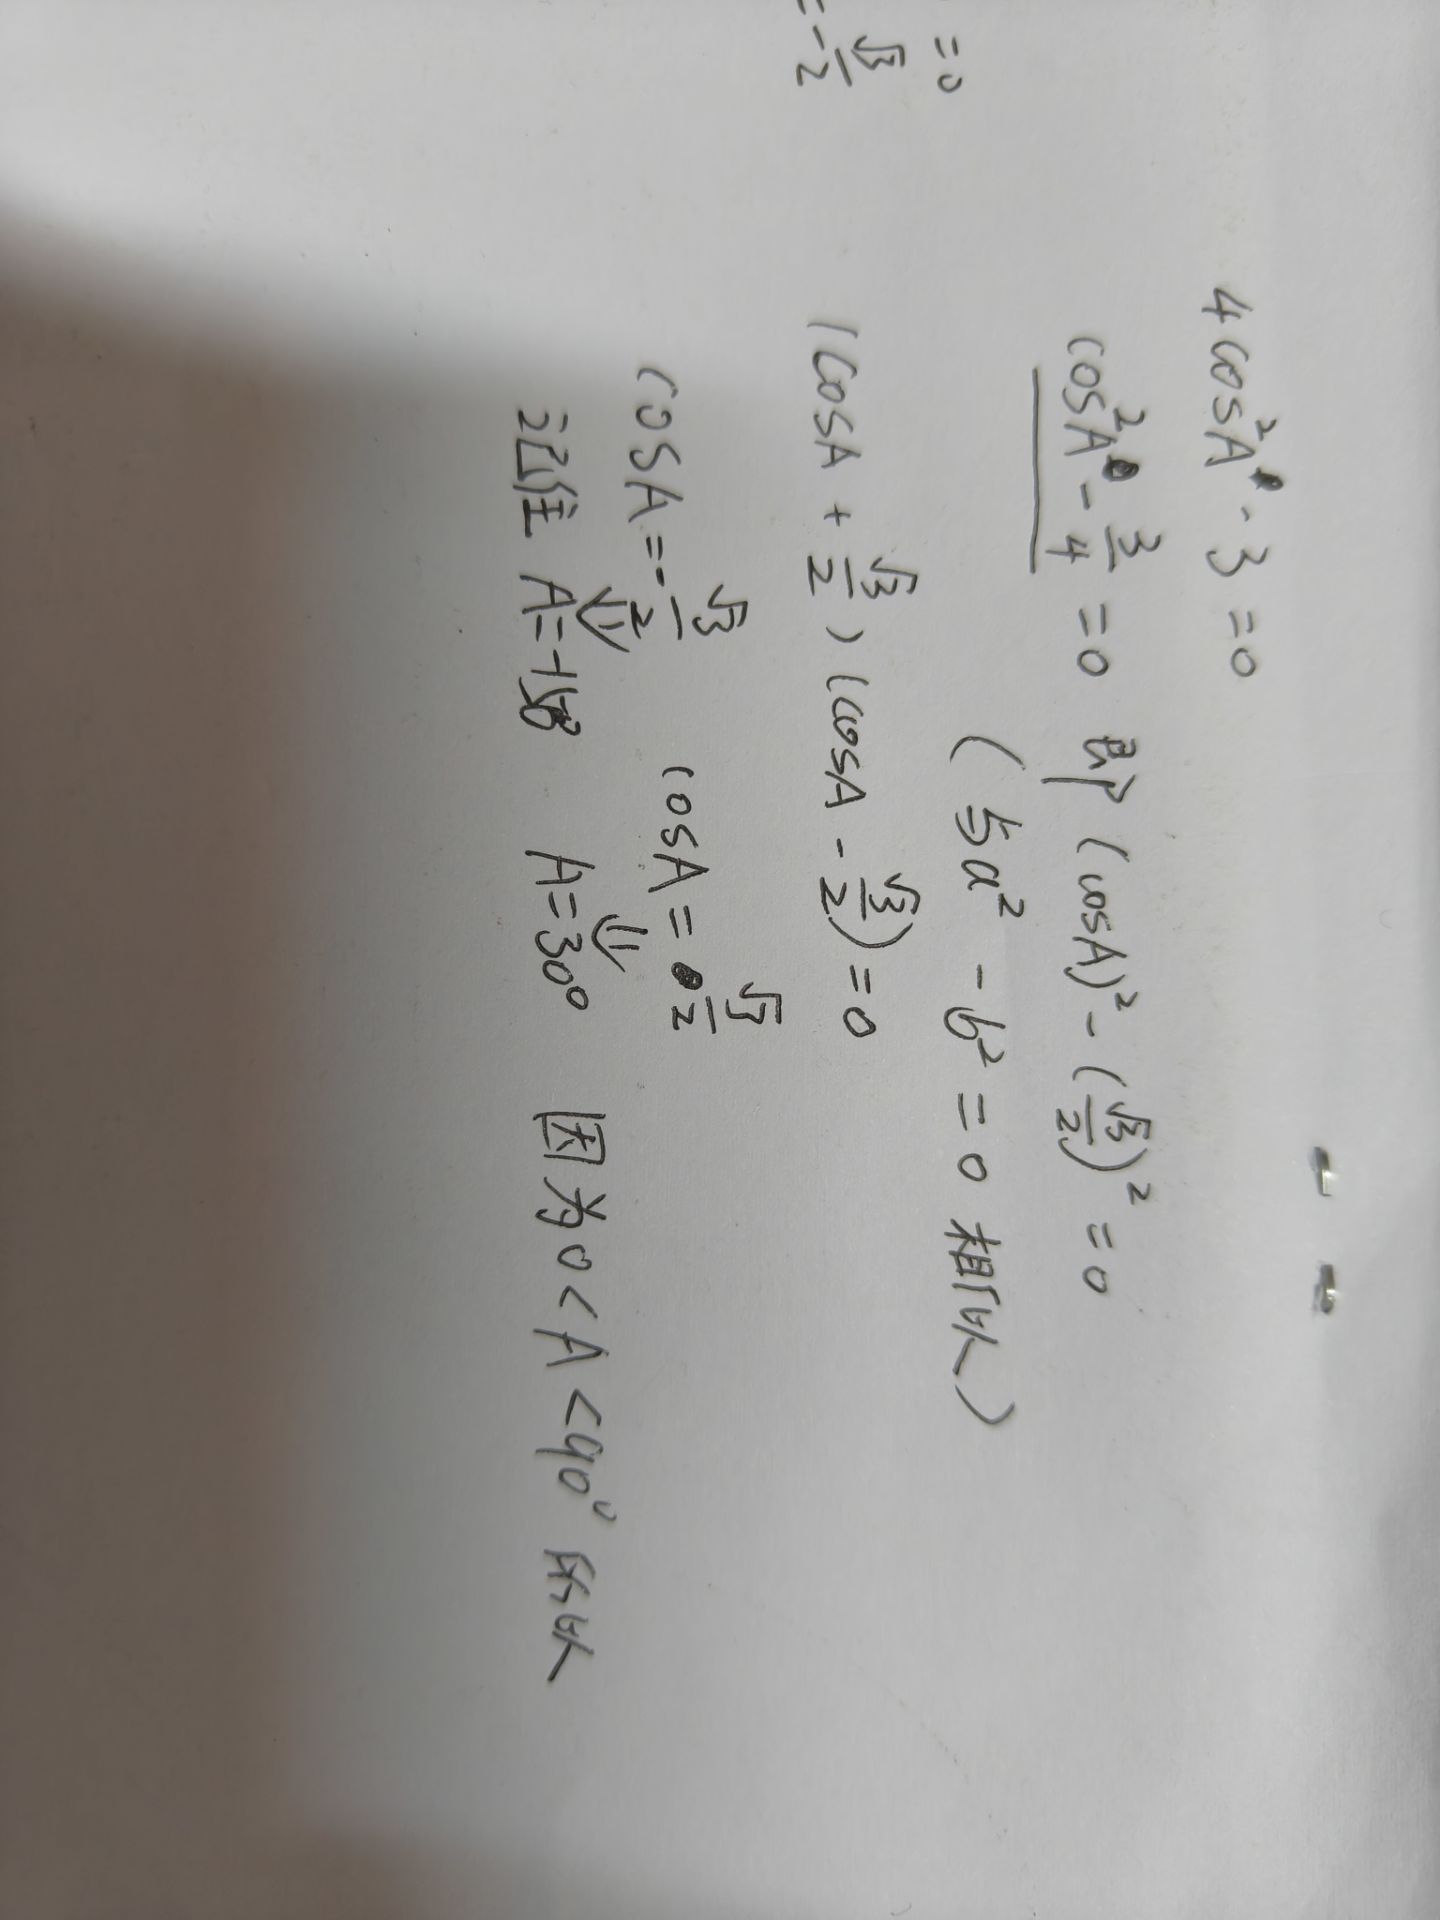 =0
=-√3/2
4cos²A-3=0
cos²A-3/4=0 即(cosA)²-(√3/2)²=0
(与a²-b²=0相似)
(cosA+√3/2)(cosA-√3/2)=0
cosA=-√3/2 cosA=√3/2
⇓ ⇓
记住 A= A=30° 因为0<A<90° 所以